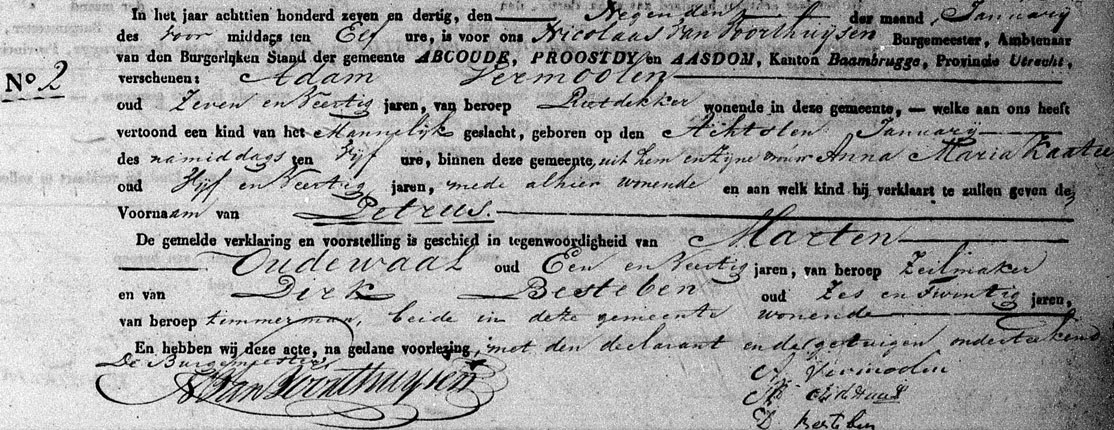 In het jaar achttien honderd zeven en dertig, den Negenden der maand January
des voor middags ten Elf ure, is voor ons Nicolaas Van Voorthuysen Burgemeester, Ambtenaar
van den Burgerlijken Stand der gemeente ABCOUDE, PROOSTDY en AASDOM, Kanton Baambrugge, Provincie Utrecht,
No 2
verschenen: Adam Vermoolen
oud Zeven en Veertig jaren, van beroep Rietdekker wonende in deze gemeente, — welke aan ons heeft
vertoond een kind van het Mannelyk geslacht, geboren op den Achtsten January
des namiddags ten Vyf ure, binnen deze gemeente, uit hem en zyne vrouw Anna Maria
oud Vyf en Veertig jaren, mede alhier wonende en aan welk kind hij verklaart te zullen geven de
Voornaam van Petrus.
De gemelde verklaring en voorstelling is geschied in tegenwoordigheid van Marten
Oudewaal oud Een en Veertig jaren, van beroep Zeilmaker
en van Dirk Besteben oud Zes en Twintig jaren,
van beroep timmerman, beide in deze gemeente wonende
En hebben wij deze acte, na gedane voorlezing, met den declarant en de getuigen onderteekend
De Burgemeester
Van Voorthuysen
A Vermoolen
D Besteben